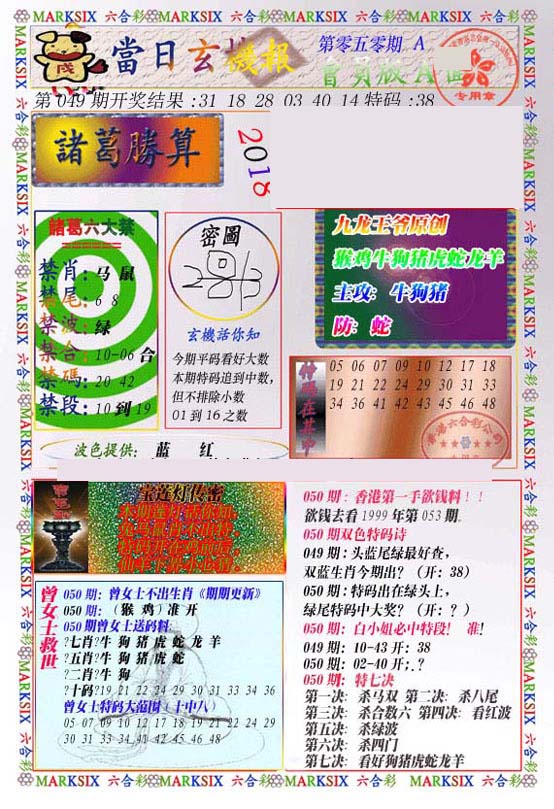 MARKSIX 六合彩 MARKSIX 六合彩 MARKSIX 六合彩 MARKSIX 六合彩
當日玄機報
第零五零期 A
會員版A面
专用章
第 049 期开奖结果 :31 18 28 03 40 14 特码 :38
諸葛勝算
2018
諸葛六大禁
禁肖: 马 鼠
禁尾: 6 8
禁波: 绿
禁合: 10-06 合
禁碼: 20 42
禁段: 10 到 19
密圖
玄機話你知
今期平码看好大数
本期特码追到中数,
但不排除小数
01 到 16 之数
九龙王爷原创
猴鸡牛狗猪虎蛇龙羊
主攻: 牛狗猪
防: 蛇
特码在其中
05 06 07 09 10 12 17 18
19 21 22 24 29 30 31 33
34 36 41 42 43 45 46 48
波色提供: 蓝 红
宝莲灯传密
050 期: 曾女士不出生肖《期期更新》
050 期: (猴 鸡) 准 开
050 期曾女士送码料:
?七肖?牛 狗 猪 虎 蛇 龙 羊
?五肖?牛 狗 猪 虎 蛇
?二肖?牛 狗
?十码?19 21 22 29 30 31 33 34 36
曾女士特码大范围 (十中八)
05 07 09 10 12 17 18 19 21 22 24 29
30 31 33 34 41 42 45 46 48
曾女士救世
050 期: 香港第一手欲钱料! !
欲钱去看 1999 年第 053 期.
050 期双色特码诗
049 期: 头蓝尾绿最好查,
双蓝生肖今期出? (开: 38)
050 期: 特码出在绿头上,
绿尾特码中大奖? (开: ? )
050 期: 白小姐必中特段! 准!
049 期: 10-43 开: 38
050 期: 02-40 开:.?
050 期: 特七决
第一决: 杀马双 第二决: 杀八尾
第三决: 杀合数六 第四决: 看红波
第五决: 杀绿波
第六决: 杀四门
第七决: 看好狗猪虎蛇龙羊
MARKSIX 六合彩 MARKSIX 六合彩 MARKSIX 六合彩 MARKSIX 六合彩